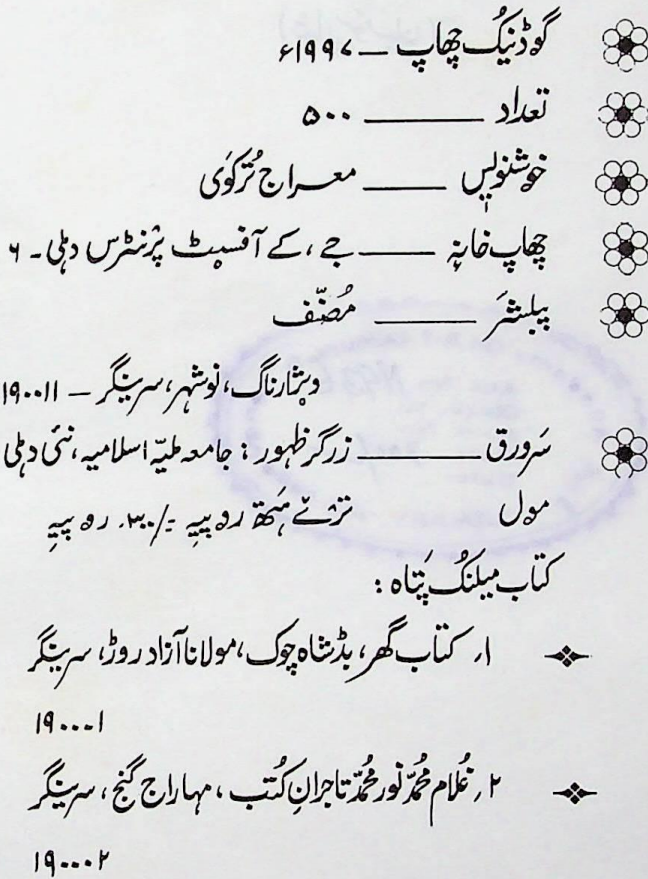 گوڈنیُک چھاپ — ۱۹۹۷ء
تعداد ——— ۵۰۰
خوشنویس ——— معراج تُرکوٗی
چھاپ خانہٕ ——— جے، کے آفسیٹ پرٛنٹرس دہلی۔ ۶
پبلشَر ——— مُصنّف
وِژارناگ، نوشہر، سرینگر — ۱۹۰۰۱۱
سَرورق ——— زرگر ظہور: جامعہ ملیّہ اسلامیہ، نئی دہلی
موٗل ترٛےٚ ہَتھ روپیہِ =/۳۰۰ روپیہِ
کتاب میلنُک پَتاہ:
۱؍ کتاب گھر، بڈشاہ چوک، مولانا آزاد روڑ، سرینگر
۱۹۰۰۰۱
۲؍ غُلام محمّد نور محمّد تاجرانِ کُتب، مہاراج گنج، سرینگر
۱۹۰۰۰۲